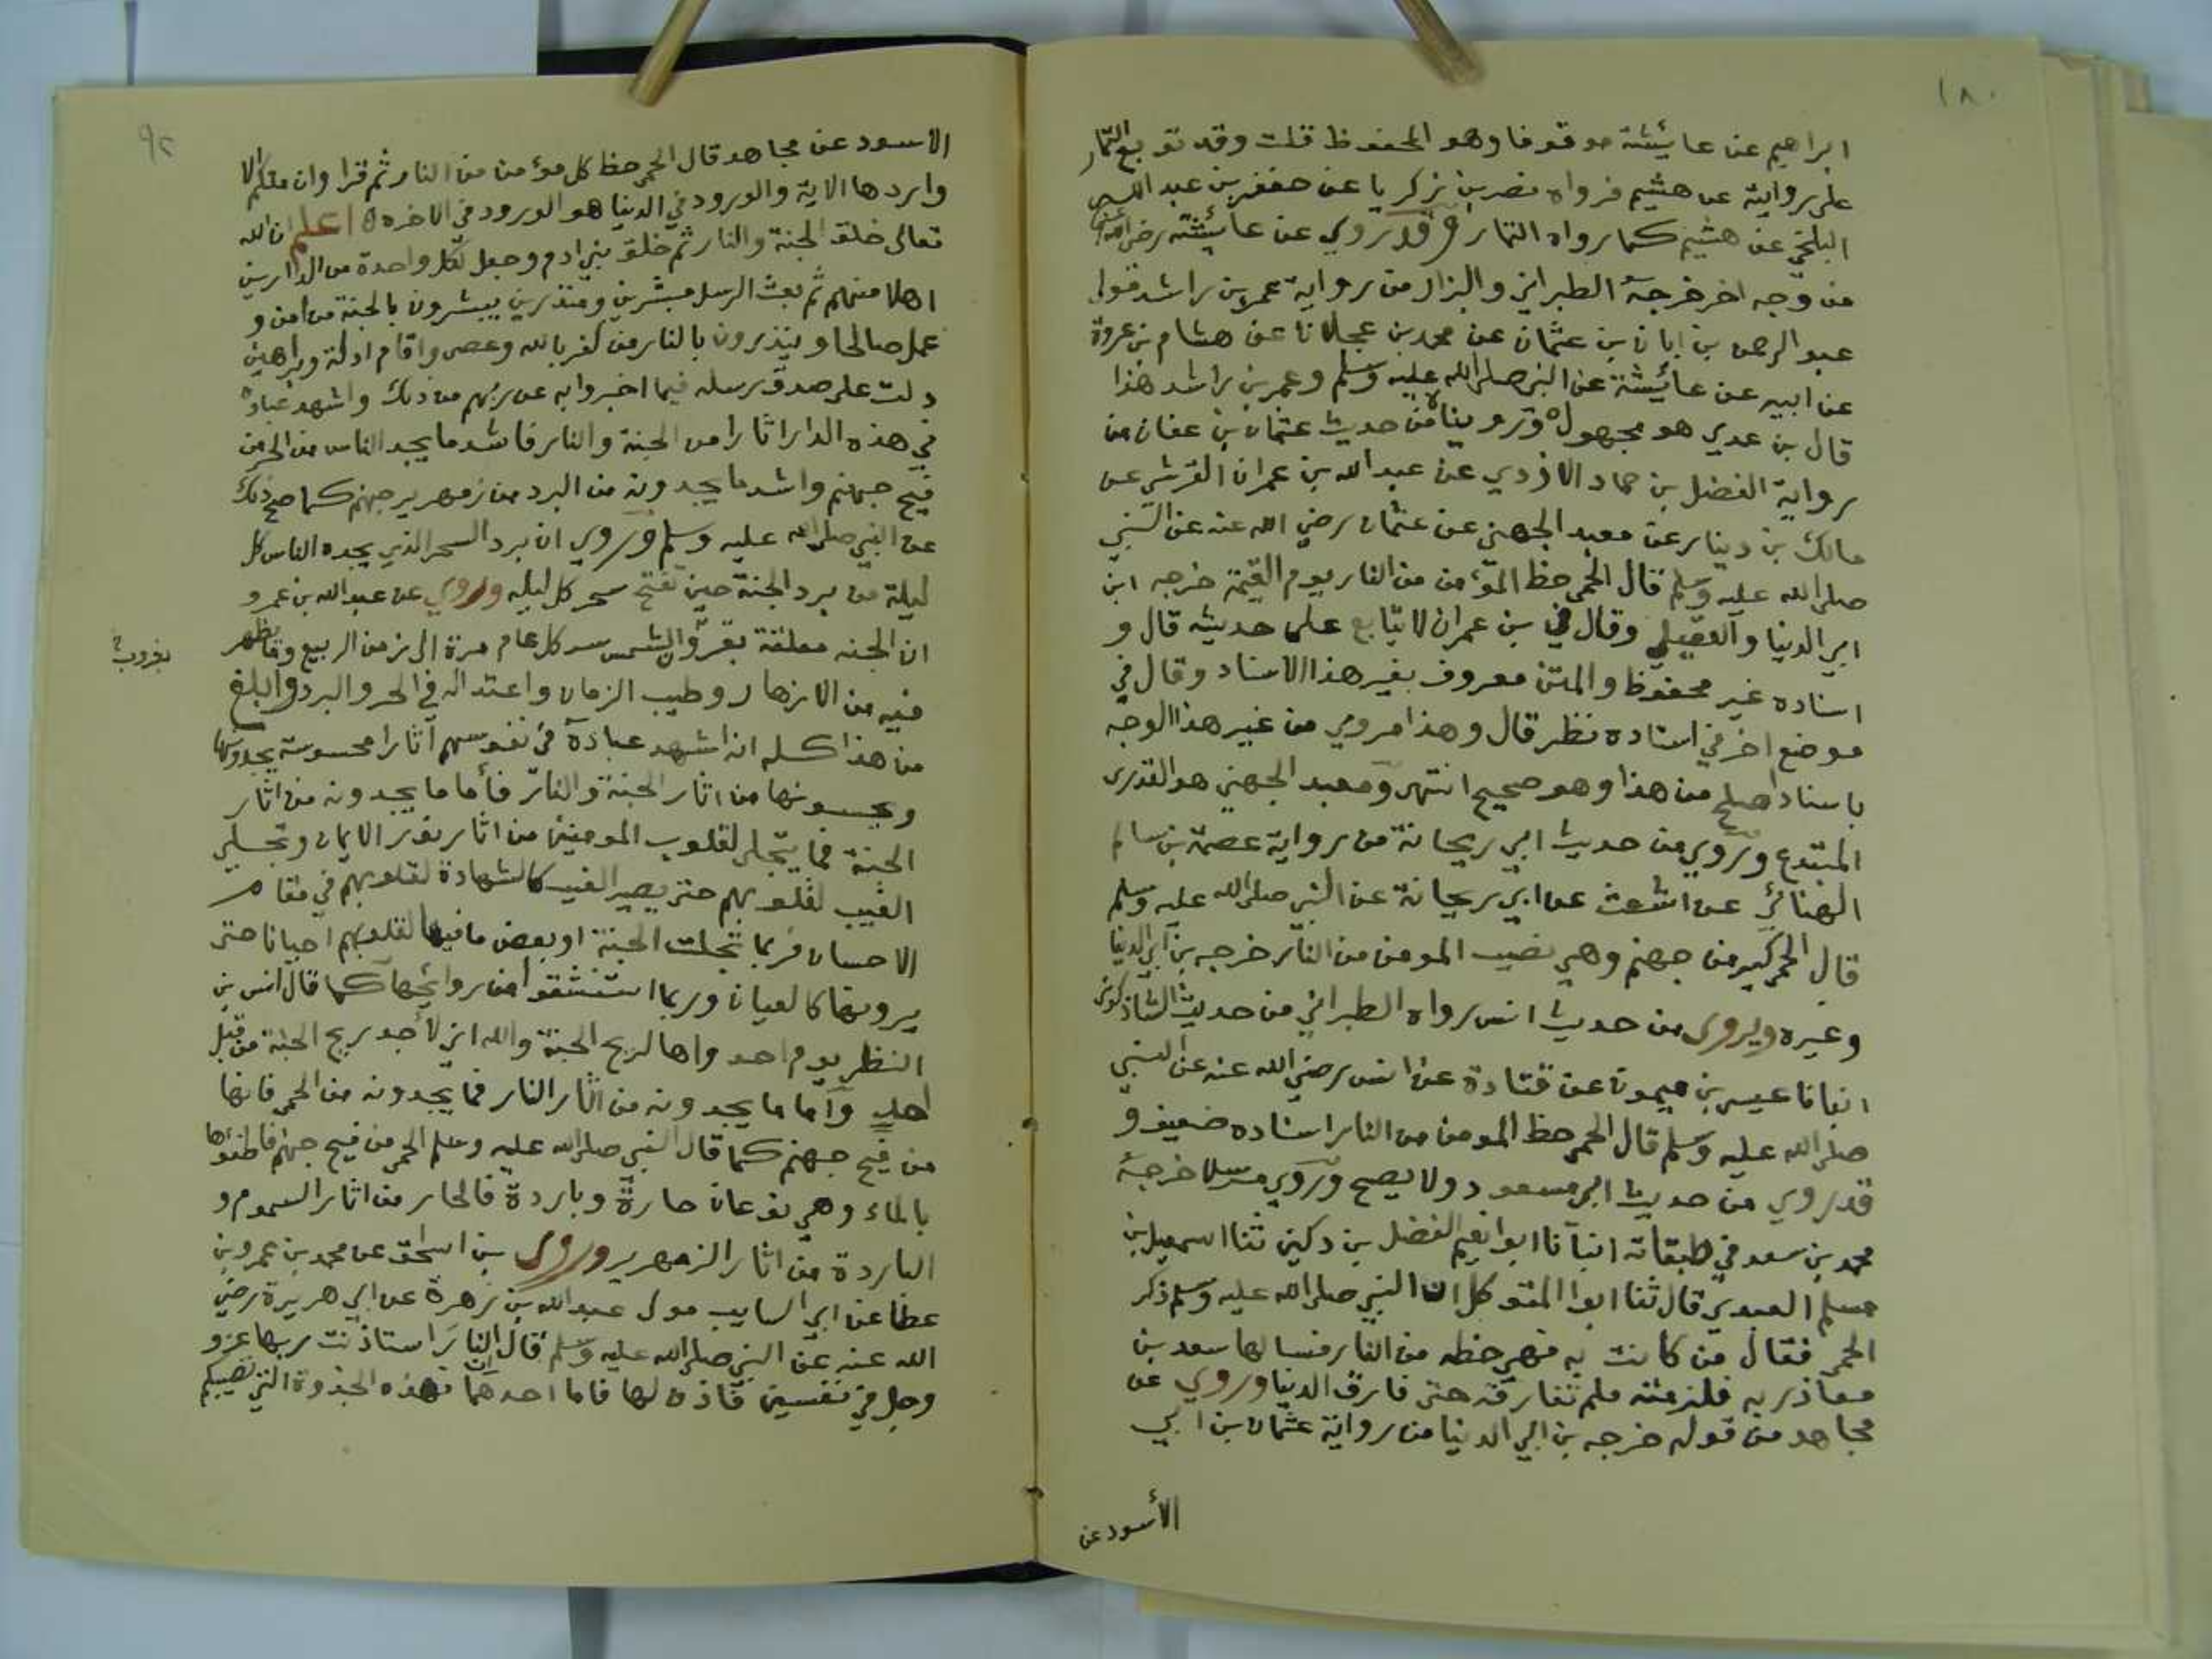 ١٨٠
ابراهيم عن عايئشة موقوفا وهو المحفوظ قلت وقد توبع التمار
على روايته عن هشيم فرواه نصر بن زكريا عن جعفر بن عبد الله
البلخي عن هشيم كما رواه التمار وقد روي عن عائيشة رضي الله عنها
من وجه اخر خرجه الطبراني والبزار من رواية عمر بن راشد مولى
عبد الرحمن بن ابان بن عثمان عن محمد بن عجلان عن هشام بن عروة
عن ابيه عن عائيشة عن النبي صلى الله عليه وسلم وعمر بن راشد هذا
قال بن عدي هو مجهول وروينا من حديث عثمان بن عفان من
رواية الفضل بن حماد الازدي عن عبد الله بن عمران القرشي عن
مالك بن دينار عن معبد الجهني عن عثمان رضي الله عنه عن النبي
صلى الله عليه وسلم قال الحمى حظ المؤمن من النار يوم القيمة خرجه ابن
ابي الدنيا والعقيلي وقال في بن عمران لا يتابع على حديثه قال و
اسناده غير محفوظ والمتن معروف بغير هذا الاسناد وقال في
موضع اخر في اسناده نظر قال وهذا مروي من غير هذا الوجه
باسناد اصلح من هذا وهو صحيح انتهى ومعبد الجهني هو القدرى
المبتدع وروي من حديث ابي ريحانة من رواية عصمة بن سالم
الهنائي عن اشعث عن ابي ريحانة عن النبي صلى الله عليه وسلم
قال الحمى كير من جهنم وهي نصيب المومن من النار خرجه بن ابي الدنيا
وغيره ويروى من حديث انس رواه الطبراني من حديث الشاذكونى
انبانا عيسى بن ميمون عن قتادة عن انس رضي الله عنه عن النبي
صلى الله عليه وسلم قال الحمى حظ المومن من النار اسناده ضعيف و
قد روي من حديث ابي مسعود ولا يصح وروي مرسلا خرجه
محمد بن سعد في طبقاته انبآنا ابوا نعيم الفضل بن دكين ثنا اسمعيل بن
مسلم العبدي قال ثنا ابوا المتوكل ان النبي صلى الله عليه وسلم ذكر
الحمى فقال من كانت به فهي حظه من النار فسالها سعد بن
معاذ ربه فلزمته فلم تفارقه حتى فارق الدنيا وروي عن
مجاهد من قوله خرجه بن ابي الدنيا من رواية عثمان بن ابي
الأسود عن
٩٢
الاسود عن مجاهد قال الحمى حظ كل مؤمن من النار ثم قرا وان منكم الا
واردها الاية والورود في الدنيا هو الورود في الاخره اعلم ان الله
تعالى خلق الجنة والنار ثم خلق بني ادم وجعل لكل واحدة من الدارين
اهلا منهم ثم بعث الرسل مبشرين ومنذرين يبشرون بالجنة من امن و
عمل صالحا وينذرون بالنار من كفر بالله وعصى واقام ادلة وبراهين
دلت على صدق رسله فيما اخبروا به عن ربهم من ذلك واشهد عباده
في هذه الدار اثارا من الجنة والنار فاشد ما يجد الناس من الحر من
فيح جهنم واشد ما يجدونه من البرد من زمهرير جهنم كما صح ذلك
عن النبي صلى الله عليه وسلم وروي ان برد السحر الذي يجده الناس كل
ليلة من برد الجنة حين تفتح سحر كل ليله وروي عن عبد الله بن عمرو
ان الجنه معلقة بقرون الشمس تنشر كل عام مرة الى زمن الربيع وما يظهر
بقرون
فيه من الازهار وطيب الزمان واعتداله في الحر والبرد وابلغ
من هذا كله انه اشهد عباده في نفوسهم آثارا محسوسة يجدونها
ويحسونها من اثار الجنة والنار فأما ما يجدونه من اثار
الجنة فما يتجلى لقلوب المومنين من اثار نور الايمان وتجلي
الغيب لقلوبهم حتى يصير الغيب كالشهادة لقلوبهم في مقام
الاحسان فربما تجلت الجنة او بعض ما فيها لقلوبهم احيانا حتى
يرونها كالعيان وربما استنشقوا من روائحها كما قال انس بن
النظر يوم احد واها لريح الجنة والله اني لأجد ريح الجنة من قبل
أحد وأما ما يجدونه من اثار النار فما يجدونه من الحمى فانها
من فيح جهنم كما قال النبي صلى الله عليه وسلم الحمى من فيح جهنم فاطفؤها
بالماء وهي نوعان حارة وباردة فالحار من اثار السموم و
الباردة من اثار الزمهرير وروى بن اسحق عن محمد بن عمرو بن
عطا عن ابي السايب مولى عبد الله بن زهرة عن ابي هريرة رضي
الله عنه عن النبي صلى الله عليه وسلم قال ان النار استاذنت ربها عز و
وجل في نفسين فأذن لها فاما احدهما فهذه الجذوة التي تصيبكم